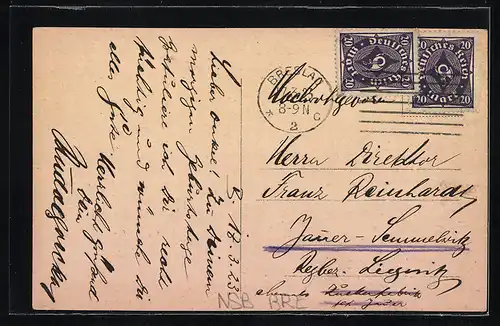 B. 12.3.23
Lieber Onkel! Zu Deinem
morgigen Geburtstage
gratuliere ich Dir recht
herzlich und wünsche Dir
alles Gute.
Herrlich grüsst
Dein
BRESLAU
8-9 N
* 2 c
Deutsches Reich
20 20
Deutsches Reich
20 20
Hochwohlgeboren
Herrn Direktor
Franz Reinhardt
Jauer-Semmelwitz
Regbez. Liegnitz
Zuckerfabrik
bei Jauer
NSB BRE